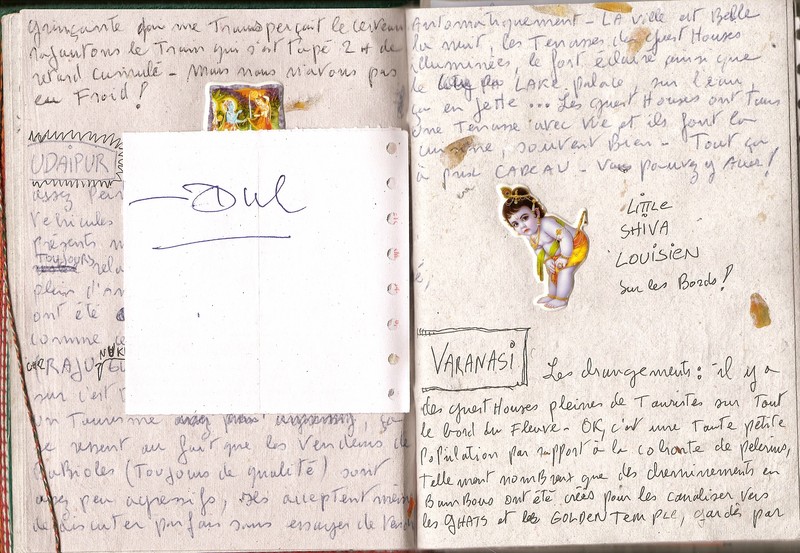 grinçante qui me transperçait le cerveau
le Train qui s'est tapé 2 H de
retard cumulé - Mais nous n'avons pas
eu Froid!
UDAIPUR
assez
Véhicules
présents
Toujours
plein d'
ont été
comme
sur c'est
un Tourisme
se ressent au fait que les Vendeurs de
BaBioles (Toujours de qualité) sont
assez peu agressifs, ils acceptent même
de discuter parfois sans essayer de
Automatiquement - LA Ville est Belle
la nuit, les Terrasses des Guest Houses
illuminées, le fort éclairé ainsi que
le LAKE palace, sur l'eau
ça en jette ... Les Guest Houses ont Tous
une Terrasse avec Vue et ils font la
cuisine, souvent Bien - Tout ça
à prix CADEAU - Vous pouvez y Aller!
LITTLE
SHIVA
LOUISIEN
sur les Bords!
VARANASI
Les changements: il y a
des Guest Houses pleines de Touristes sur Tout
le bord du Fleuve - OK, c'est une Toute petite
Population par rapport à la cohorte de pélerins,
Tellement nomBreux que des cheminements en
BamBous ont été créés pour les canaliser vers
les GHATS et le GOLDEN TEMPLE, gardés par